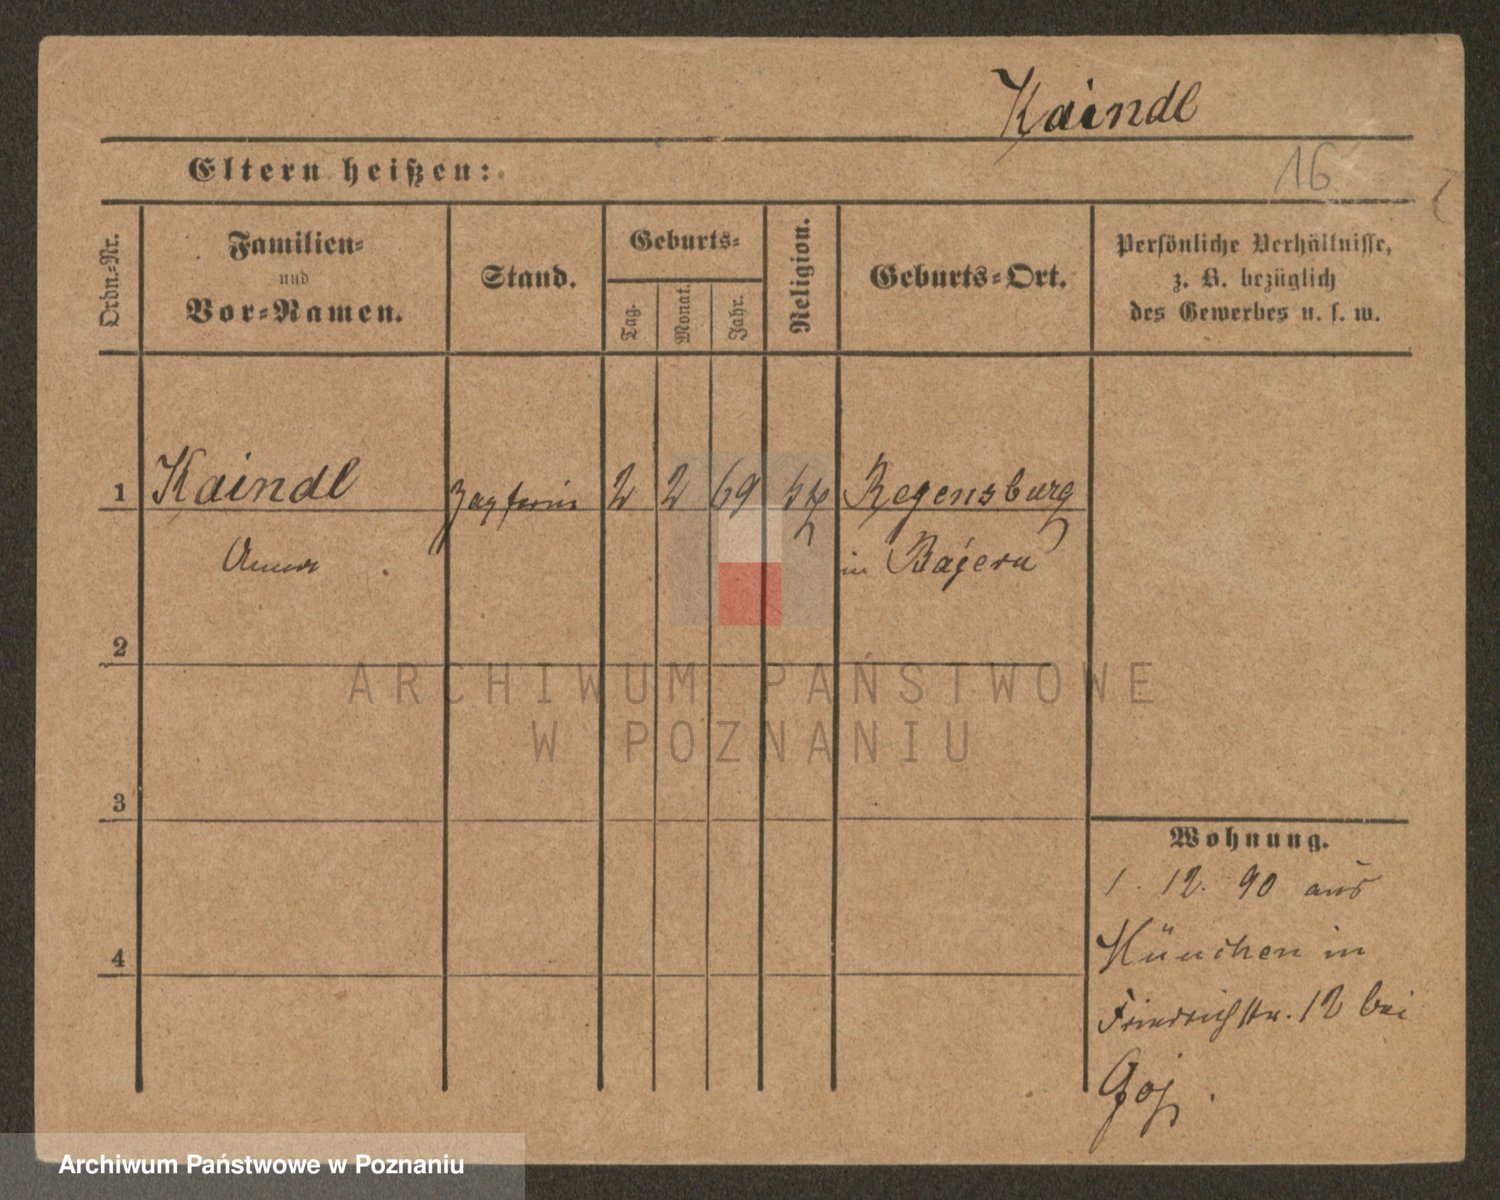 Kaindl
Eltern heißen:
16
Ordn.-Nr.
Familien-
und
Vor-Namen.
Stand.
Geburts-
Tag.
Monat.
Jahr.
Religion.
Geburts-Ort.
Persönliche Verhältnisse,
z. B. bezüglich
des Gewerbes u. s. w.
1 Kaindl 2 2 69 Regensburg
Anna in Bayern
2
3
4
ARCHIWUM PAŃSTWOWE
W POZNANIU
Wohnung.
1. 12. 90 aus
München in
Friedrichstr. 12 bei
Archiwum Państwowe w Poznaniu